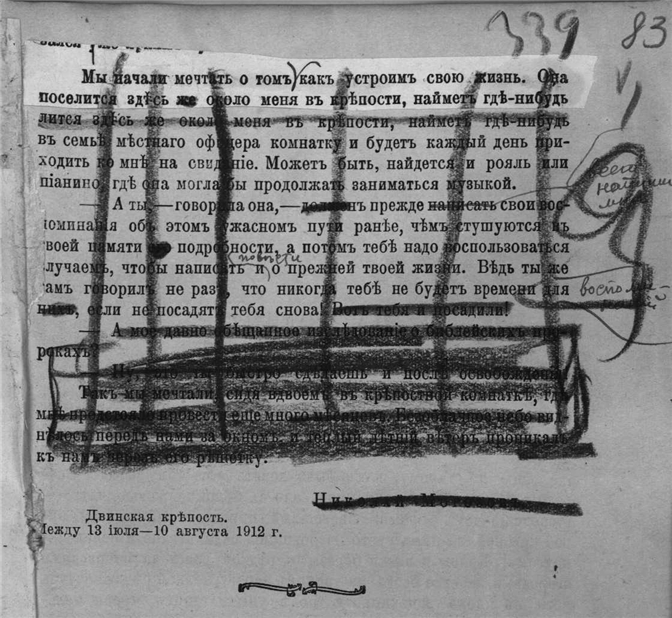 339 83
Мы начали мечтать о томъ, какъ устроимъ свою жизнь. Она
поселится здѣсь же около меня въ крѣпости, найметъ гдѣ-нибудь
лится здѣсь же около меня въ крѣпости, найметъ гдѣ-нибудь
въ семьѣ мѣстнаго офицера комнатку и будетъ каждый день при-
ходить ко мнѣ на свиданіе. Можетъ быть, найдется и рояль или
піанино, гдѣ она могла бы продолжать заниматься музыкой.
— А ты,—говорила она,— долженъ прежде написать свои вос-
поминанія объ этомъ ужасномъ пути ранѣе, чѣмъ стушуются въ
твоей памяти подробности, а потомъ тебѣ надо воспользоваться
повѣсти
случаемъ, чтобы написать и о прежней твоей жизни. Вѣдь ты же
самъ говорилъ не разъ, что никогда тебѣ не будетъ времени для
нихъ, если не посадятъ тебя снова. Вотъ тебя и посадили!
— А мое давно обѣщанное изслѣдованіе о библейскихъ про-
рокахъ?
— Ну, это ты быстро сдѣлаешь и послѣ освобожденія.
Такъ мы мечтали, сидя вдвоемъ въ крѣпостной комнаткѣ, гдѣ
мнѣ предстояло провести еще много мѣсяцевъ. Безоблачное небо вид-
нѣлось передъ нами за окномъ, и теплый лѣтній вѣтеръ проникалъ
къ намъ черезъ его рѣшетку.
Двинская крѣпость.
Между 13 іюля—10 августа 1912 г.